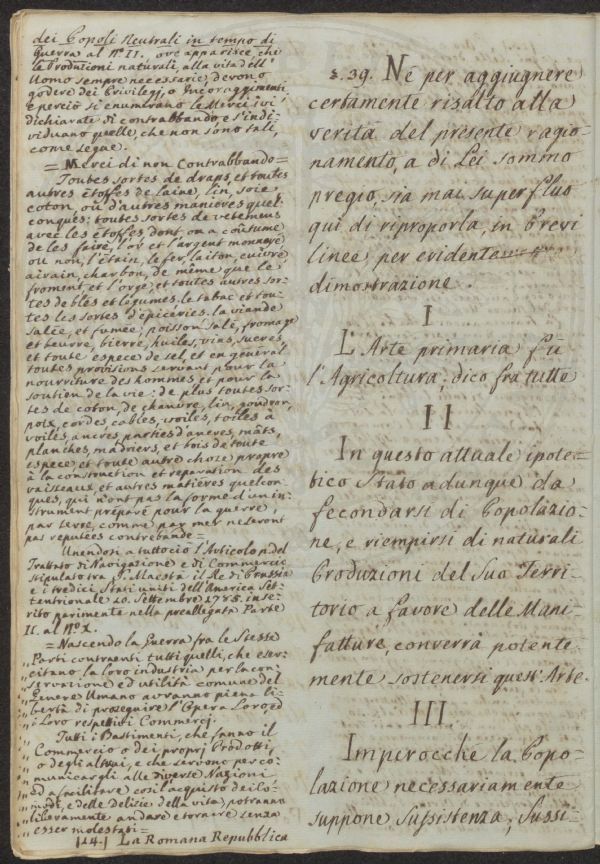 dei Popoli Neutrali in tempo di
Guerra al N.º II. ove apparisce, che
le Produzioni naturali, alla vita dell'
Uomo sempre necessarie, devono
godere dei Privilegj, o Incoraggimenti,
e perciò si enumerano le Merci ivi
dichiarate di contrabbando, e s'indi-
viduano quelle, che non sono tali,
come segue.
= Merci di non Contrabbando =
Toutes sortes de draps, et toutes
autres étoffes de laine, lin, soie,
coton, où d'autres manieres quel-
conques: toutes sortes de vetemens
avec les étoffes, dont on a coûtume
de les faire, l'or et l'argent monnoyé
ou non, l'étain, le fer, laiton, cuivre,
airain, charbon, de même que le
froment, et l'orge, et toutes autres sor-
tes de bles et legumes, le tabac et tou-
tes les sortes d'epiceries. la viande
salée, et fumée, poisson salé, fromage
et beurre, bierre, huiles, vins, sucres,
et toute espece de sel, et en général
toutes provisions servant pour la
nourriture des hommes et pour la
soutien de la vie: de plus toutes sor-
tes de coton, de chanvre, lin, goudron,
poix, cordes, cables, voiles, toiles à
voiles, ancres, parties d'ancres, mâts,
planches, madriers, et bois de toute
espece, et toute autre chose propre
à la construction et reparation des
vaisseaux, et autres matières quelcon-
ques, qui n'ont pas la forme d'un in-
strument préparé pour la guerre,
par terre, comme par mer ne seront
pas reputées contrebande =
Unendosi a tuttociò l'Articolo p. del
Trattato di Navigazione e di Commercio
stipulato tra S. Maestà il Re di Prussia
e i tredici Stati uniti dell'America Set-
tentrionale 10. Settembre 1785. inse-
rito parimente nella preallegata Parte
II. al N.º X.
= Nascendo la Guerra tra le Stesse
„ Parti contraenti tutti quelli, che eser-
„ citano la loro industria per la con-
„ servazione ed utilità comune del
„ Genere Umano avranno piena li-
„ bertà di proseguire l'Opera Loro, ed
„ i Loro respettivi Commercj.
„ Tutti i Bastimenti, che fanno il
„ Commercio o dei proprj Prodotti,
„ o degli altrui, e che servono per co-
„ municargli alle diverse Nazioni,
„ ed a facilitare così l'acquisto dei co-
„ modi, e delle delicie della vita, potranno
„ liberamente andare e tornare senza
„ esser molestati =
(14.) La Romana Repubblica
§. 39. Nè per aggiugnere
certamente risalto alla
verità del presente ragio-
namento, a di Lei sommo
pregio, sia mai superfluo
qui di riproporla, in brevi
linee per evidente
dimostrazione.
I
L'Arte primaria fù
l'Agricoltura; dico fra tutte
II
In questo attuale ipote-
tico Stato adunque da
fecondarsi di Popolazio-
ne, e riempirsi di naturali
Produzioni del Suo Terri-
torio a favore delle Mani-
fatture, converrà potente-
mente sostenersi quest'Arte.
III.
Imperocchè la Popo-
lazione necessariamente
suppone Sussistenza; Sussi-